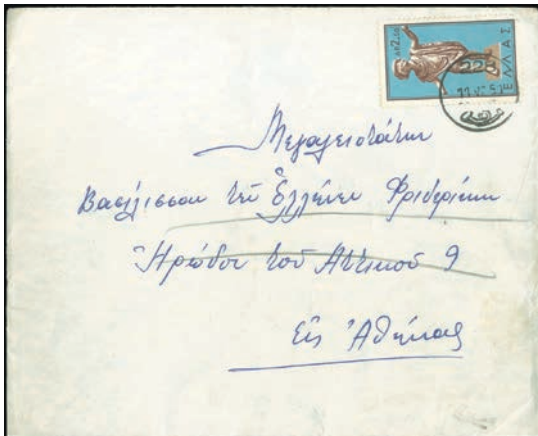 ΔΡ 2.50
ΕΛΛΑΣ
Μεγαλειοτάτην
Βασίλισσαν τῶν Ἑλλήνων Φριδερίκην
Ἡρώδου τοῦ Ἀττικοῦ 9
Εἰς Ἀθήνας